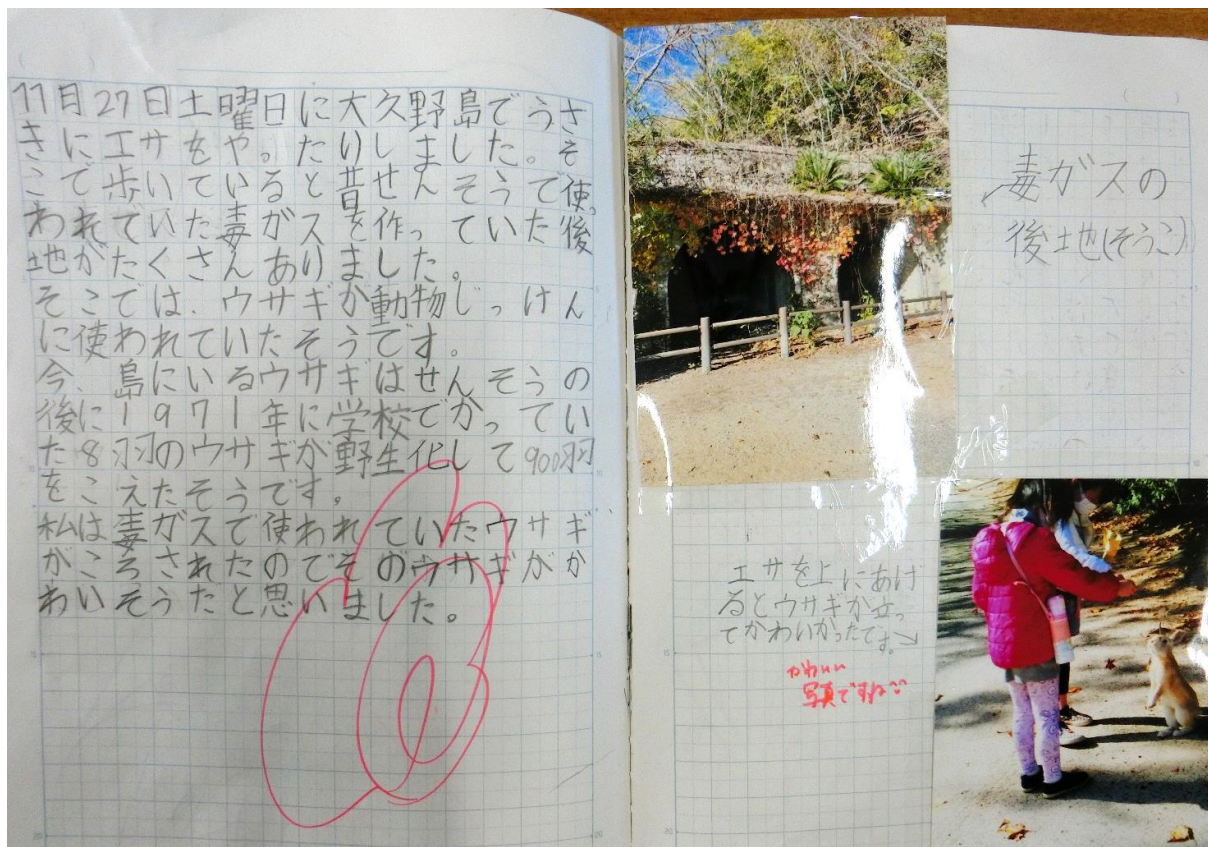 11月27日土曜日に大久野島でうさ
きにエサをやったりしました。そ
こで歩いていると昔せんそうで使
われていた毒がスを作っていた後
地がたくさんありました。
そこでは、ウサギが動物じっけん
に使われていたそうです。
今、島にいるウサギはせんそうの
後に1971年に学校でかってい
た8羽のウサギが野生化して900羽
をこえたそうです。
私は毒ガスで使われていたウサギ
がころされたのでそのウサギがか
わいそうだと思いました。
毒ガスの
後地(そうこ)
エサを上にあげ
るとウサギが立っ
てかわいかったです。
かわいい
写真ですね